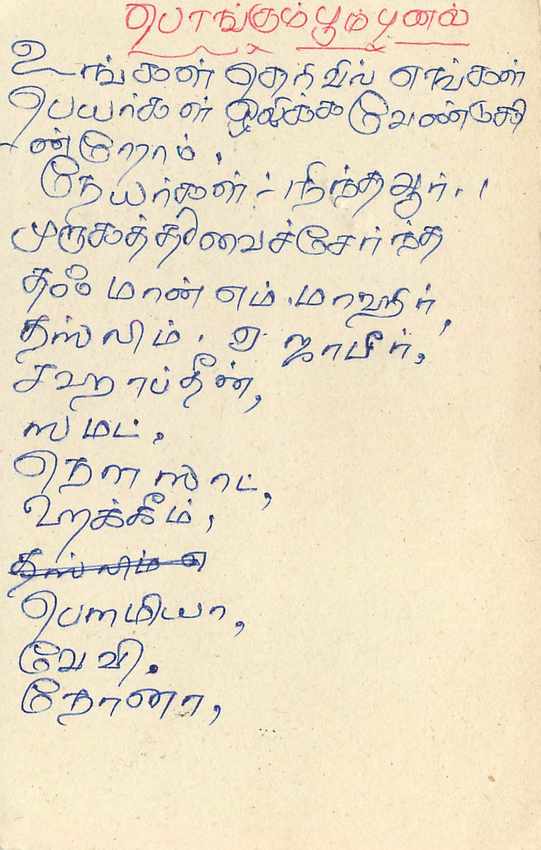 பொங்கும்பூம்புனல்
உங்கள் தெரிவில் எங்கள்
பெயர்கள் ஒலிக்க வேண்டுகி
ன்றோம்.
நேயர்கள் :- நிந்தவூர்.
முருகத்தீவைச்சேர்ந்த
தஃமான் எம். மாஹிர்,
தஸ்லிம். ஏ ஜாபீர்,
சிஹாப்தீன்,
ஸமட்.
நௌஸாட்,
ஹக்கீம்,
தஸ்லிம் எ
பௌமியா,
வேவி.
நோனா,